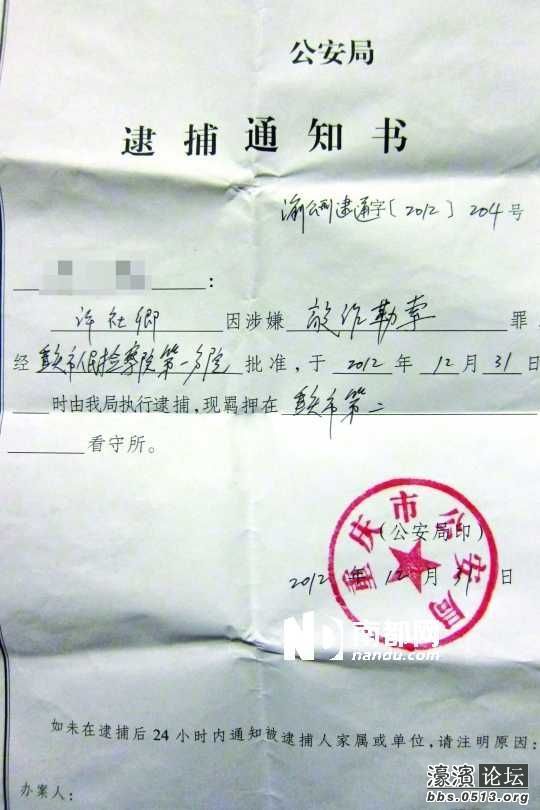 公安局
逮捕通知书
渝公刑逮通字〔2012〕204号
：
许社卿 因涉嫌 敲诈勒索 罪
经 重庆市人民检察院第一分院 批准，于 2012 年 12 月 31 日
时由我局执行逮捕，现羁押在 重庆市第二
看守所。
重庆市公安局
（公安局印）
2012 年 12 月 31 日
N 南都网
nandu.com
如未在逮捕后24小时内通知被逮捕人家属或单位，请注明原因：
办案人：
濠滨论坛
bbs.0513.org